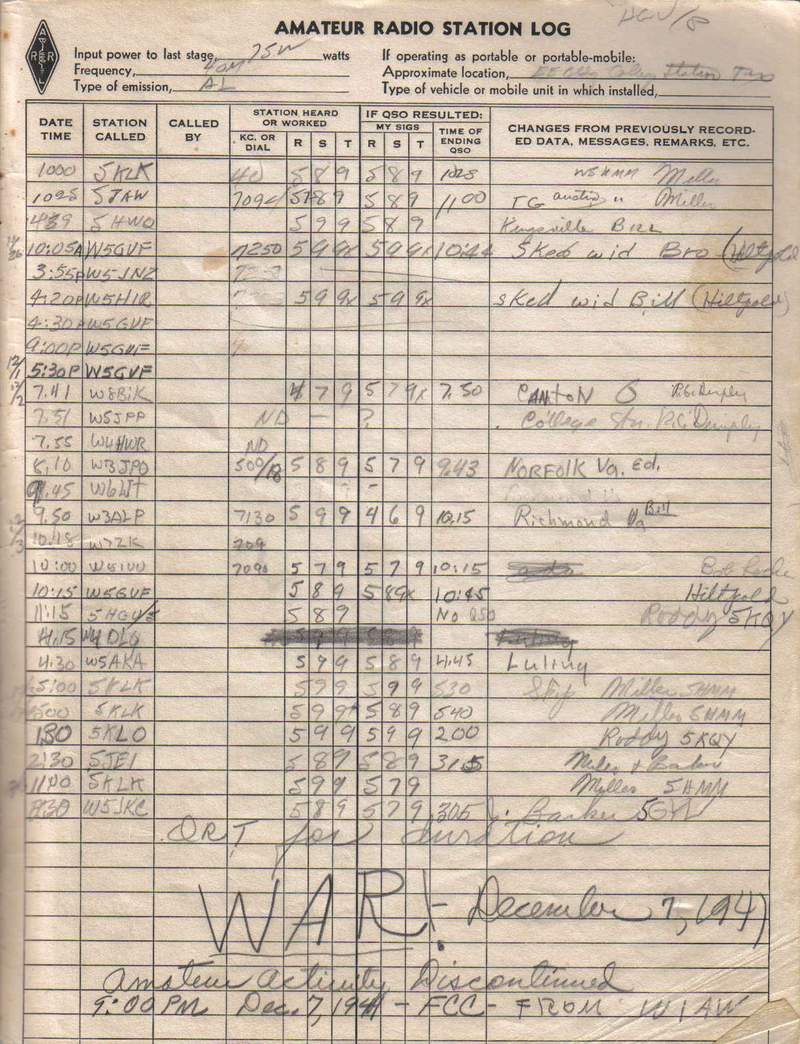 HGV/8
AMATEUR RADIO STATION LOG
A R R L
Input power to last stage, 75W watts If operating as portable or portable-mobile:
Frequency, 40M Approximate location, Station Tex
Type of emission, A1 Type of vehicle or mobile unit in which installed,
DATE TIME STATION CALLED CALLED BY STATION HEARD OR WORKED KC. OR DIAL R S T IF QSO RESULTED: MY SIGS R S T TIME OF ENDING QSO CHANGES FROM PREVIOUSLY RECORDED DATA, MESSAGES, REMARKS, ETC.
1000 5KLK 40 5 8 9 5 8 9 1025 W5HMM Miller
1025 5JAW 7094 5 8 9 5 8 9 1100 TG austin " Miller
439 5HWO 5 9 9 5 8 9 Kingsville Bill
10:05A W5GVF 7250 5 9 9x 5 9 9x 10:44 Sked wid Bro (Hiltpold
3:55P W5JNZ
4:20P W5HIR 5 9 9x 5 9 9x sked wid Bill (Hiltpold)
4:30P W5GVF
9:00P W5GVF
12/1 5:30P W5GVF
12/2 7.41 W8BIK 4 7 9 5 7 9x 7.50 CANTON O
7.51 W5JPP ND — ? College Stn.
7.55 W4HWR ND
8.10 W3JPO 5 8 9 5 7 9 9.43 NORFOLK Va. Ed.
9.45 W6WT
9.50 W3ALP 7130 5 9 9 4 6 9 10.15 Richmond Va Bill
10.15 W7ZK 709
10:00 W5IUU 7090 5 7 9 5 7 9 10:15 Bob
10:15 W5GVF 5 8 9 5 8 9x 10:45 Hiltpold
11:15 5HGV/5 5 8 9 No QSO Roddy 5KQY
4.15 W4DLQ
4.30 W5AKA 5 9 9 5 8 9 4.45 Luling
5:00 5KLK 5 9 9 5 9 9 530 Skip Miller 5HMM
500 5KLK 5 9 9 5 8 9 540 Miller 5HMM
1:30 5KLO 5 9 9 5 9 9 200 Roddy 5KQY
2:30 5JEI 5 8 9 5 8 9 315 Miller & Barker
11:00 5KLK 5 9 9 5 7 9 Miller 5HMM
W5JKC 5 8 9 5 7 9 305 J. Barker
QRT for duration
WAR! - December 7, 1941
Amateur Activity Discontinued
9:00 PM Dec. 7, 1941 - FCC - FROM W1AW